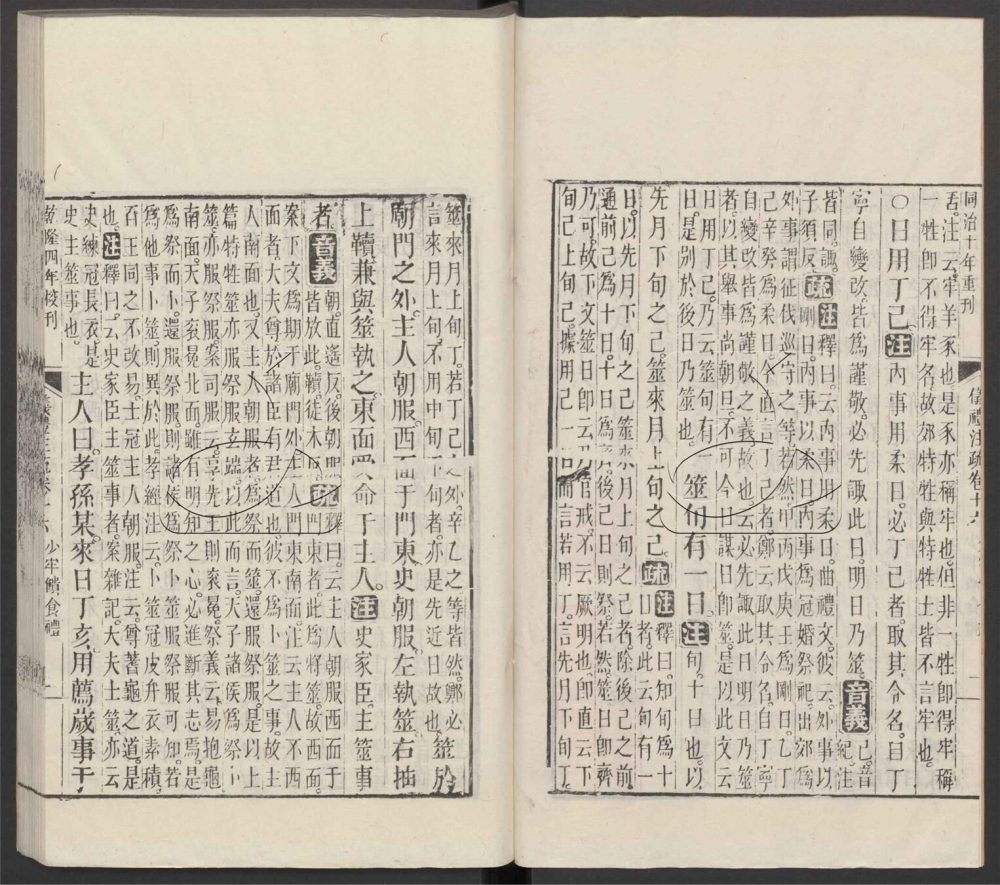 同治十年重刊　儀禮注疏卷十六　二
吾。注云。牢羊豕也。是豕亦稱牢也。但非一牲卽得牢稱
一牲卽不得牢名。故郊特牲與特牲士皆不言牢也
〇日用丁己。注內事用柔日。必丁己者。取其令名。自丁
寧自變改。皆爲謹敬。必先諏此日。明日乃筮。音義己音紀注
皆同。諏子須反。疏注釋曰。云內事用柔日。曲禮文。彼云。外事以
剛日。內事以柔日。內事爲冠婚祭祀。出郊爲
外事。謂征伐巡守之等。若然甲丙戊庚壬爲剛日。乙丁
己辛癸爲柔日。今直言丁己者。鄭云取其令名。自丁寧
自變改。皆爲謹敬之義故也。云必先諏此日明日乃筮
者。以其舉事尚朝旦。不可今日謀日卽筮。是以此文云
日用丁己。乃云筮旬有一
日。是別於後日乃筮也。筮旬有一日。注旬。十日也。以
先月下旬之己。筮來月上旬之己。疏注釋曰。知旬爲十
日者。此云旬有一
日。以先月下旬之己。筮來月上旬之己。除後己之前。
通前己爲十日。十日爲齊。後己日則祭。若然。筮日卽齊
乃可。故下文筮日卽云乃官戒。不云厥明也。卽直云下
旬己上旬己。據用己一日而言。若用丁。言先月下旬丁
筮來月上旬丁。若丁己之外。辛乙之等皆然。鄭必
言來月上旬。不用中旬下旬者。亦是先近日故也。筮於
廟門之外。主人朝服。西面于門東。史朝服。左執筮。右抽
上韇。兼與筮執之。東面受命于主人。注史。家臣。主筮事
者。音義朝。直遙反。後朝服皆放此。韇。徒木反。疏釋曰。云主人朝服西面于
門東者。此爲將筮。故西面。
案下文爲期于廟門外。主人門東南面。注云。主人不西
面者。大夫尊。於諸臣有君道也。彼不爲卜筮之事。故主
人南面也。又主人大朝服者。爲祭而筮。還服祭服。是以上
篇特牲筮亦服祭服玄端。以此而言。天子諸侯爲祭卜
筮。亦服祭服。案司服云。享先王則袞冕。祭義云。易抱龜
南面。天子袞冕北面。雖有明知之心。必進斷其志焉。是
爲祭而卜。還服祭服。則諸侯爲祭卜筮服祭服可知。若
爲他事卜筮。則異於此。孝經注云。卜筮冠皮弁。衣素積。
百王同之不改易。士冠主人朝服。注云。尊蓍龜之道。是
也。注釋曰。云史家臣主筮事者。案雜記。大夫士筮。亦云
史練冠長衣。是
史主筮事也。主人曰。孝孫某。來日丁亥。用薦歲事于
乾隆四年校刊　少牢饋食禮　二